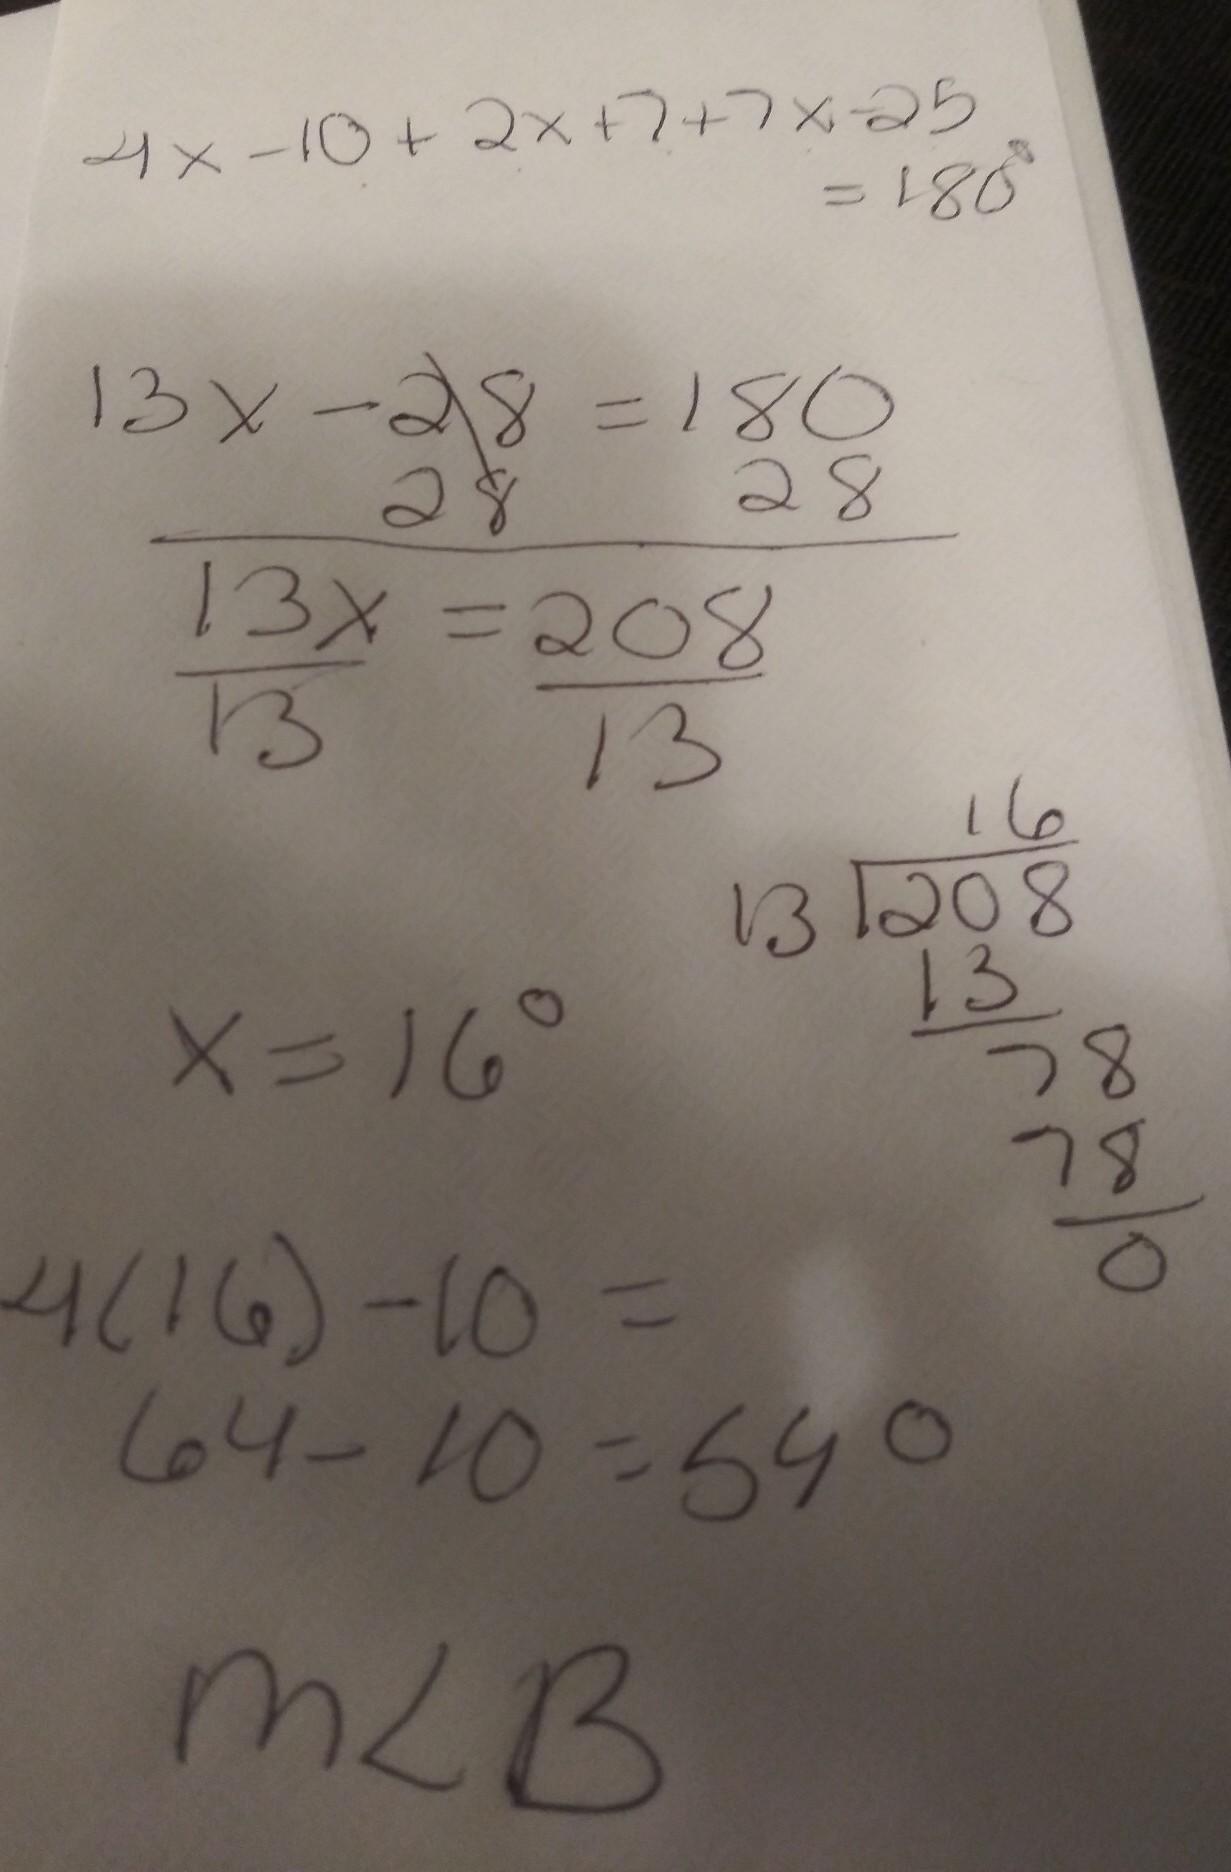 4x-10+2x+7+7x-25
=180°
13x-28=180
28 28
13x = 208
13 13
16
13 208
13
78
x=16°
78
0
4(16)-10=
64-10=54°
m<B